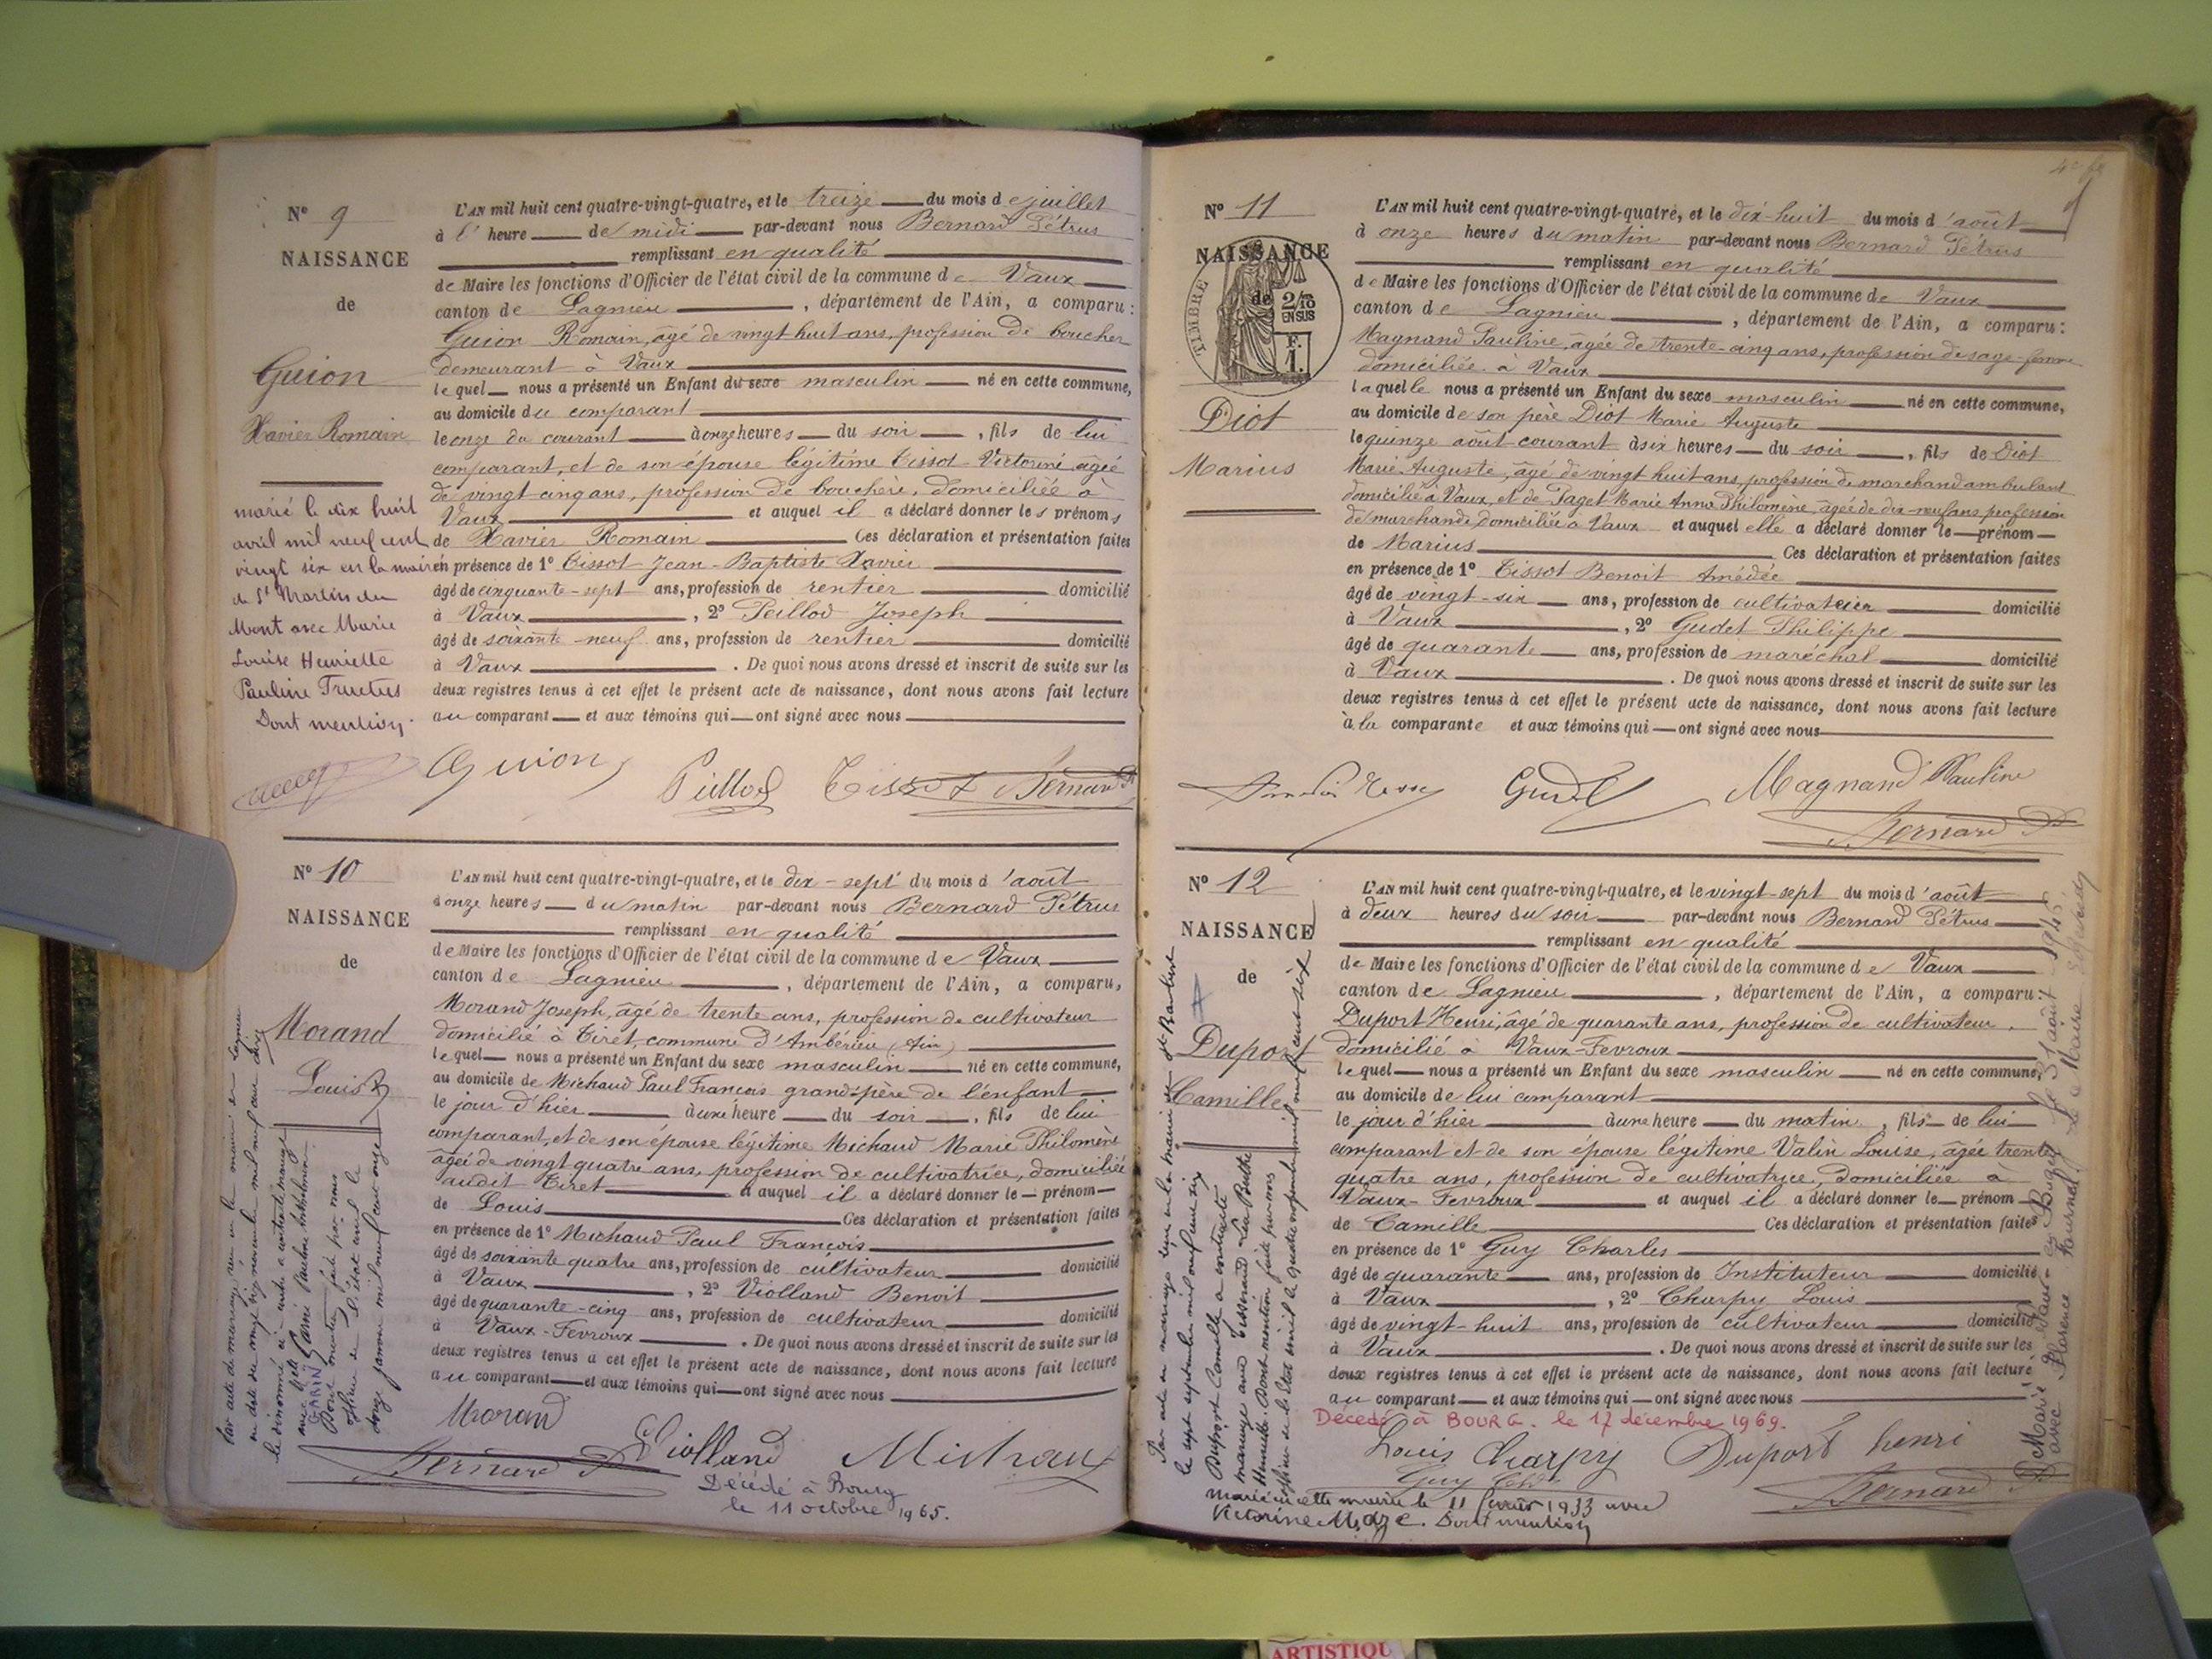 Nº 9
NAISSANCE
de
Guion
Xavier Romain
marié le dix huit
avril mil neuf cent
vingt six en la mairie
de St Martin du
Mont avec Marie
Louise Henriette
Pauline Fructus
Dont mention.
L'AN mil huit cent quatre-vingt-quatre, et le treize du mois de juillet
à l' heure de midi par-devant nous Bernard Pétrus
remplissant en qualité
de Maire les fonctions d'Officier de l'état civil de la commune de Vaux
canton de Lagnieu, département de l'Ain, a comparu:
Guion Romain, âgé de vingt huit ans, profession de boucher
demeurant à Vaux
lequel nous a présenté un Enfant du sexe masculin né en cette commune,
au domicile du comparant
le onze du courant à onze heures du soir, fils de lui
comparant, et de son épouse légitime Tissot Victorine âgée
de vingt-cinq ans, profession de bouchère, domiciliée à
Vaux et auquel il a déclaré donner les prénoms
de Xavier Romain Ces déclaration et présentation faites
en présence de 1º Tissot Jean-Baptiste Xavier
âgé de cinquante-sept ans, profession de rentier domicilié
à Vaux, 2º Peillod Joseph
âgé de soixante-neuf ans, profession de rentier domicilié
à Vaux. De quoi nous avons dressé et inscrit de suite sur les
deux registres tenus à cet effet le présent acte de naissance, dont nous avons fait lecture
au comparant et aux témoins qui ont signé avec nous
Guion Peillod Tissot Bernard
Nº 10
NAISSANCE
de
Morand
Louis
Par acte de mariage reçu en la mairie de Lagnieu
le dénommé ci-contre a contracté mariage
avec Melle
GARIN
Dont mention faite par nous
officier de l'état civil le
douze janvier mil neuf cent onze
L'AN mil huit cent quatre-vingt-quatre, et le dix-sept du mois d'août
à onze heures du matin par-devant nous Bernard Pétrus
remplissant en qualité
de Maire les fonctions d'Officier de l'état civil de la commune de Vaux
canton de Lagnieu, département de l'Ain, a comparu,
Morand Joseph, âgé de trente ans, profession de cultivateur
domicilié à Tiret, commune d'Ambérieu (Ain)
lequel nous a présenté un Enfant du sexe masculin né en cette commune,
au domicile de Michaud Paul François grand-père de l'enfant
le jour d'hier à une heure du soir, fils de lui
comparant, et de son épouse légitime Michaud Marie Philomène
âgée de vingt quatre ans, profession de cultivatrice, domiciliée
audit Tiret et auquel il a déclaré donner le prénom
de Louis Ces déclaration et présentation faites
en présence de 1º Michaud Paul François
âgé de soixante quatre ans, profession de cultivateur domicilié
à Vaux, 2º Violland Benoit
âgé de quarante-cinq ans, profession de cultivateur domicilié
à Vaux-Fevroux. De quoi nous avons dressé et inscrit de suite sur les
deux registres tenus à cet effet le présent acte de naissance, dont nous avons fait lecture
au comparant et aux témoins qui ont signé avec nous
Morand
Bernard Violland Michaud
Décédé à Bourg
le 11 octobre 1965.
Nº 11
NAISSANCE
de
TIMBRE
2/10
EN SUS
F.
1.
Diot
Marius
L'AN mil huit cent quatre-vingt-quatre, et le dix-huit du mois d'août
à onze heures du matin par-devant nous Bernard Pétrus
remplissant en qualité
de Maire les fonctions d'Officier de l'état civil de la commune de Vaux
canton de Lagnieu, département de l'Ain, a comparu:
Magnand Pauline, âgée de trente-cinq ans, profession de sage-femme
domiciliée à Vaux
laquelle nous a présenté un Enfant du sexe masculin né en cette commune,
au domicile de son père Diot Marie Auguste
le quinze août courant à six heures du soir, fils de Diot
Marie Auguste, âgé de vingt huit ans, profession de marchand ambulant
domicilié à Vaux, et de Paget Marie Anna Philomène, âgée de dix-neuf ans profession
de marchande domiciliée à Vaux et auquel elle a déclaré donner le prénom
de Marius Ces déclaration et présentation faites
en présence de 1º Tissot Benoit Amédée
âgé de vingt-six ans, profession de cultivateur domicilié
à Vaux, 2º Gudet Philippe
âgé de quarante ans, profession de maréchal domicilié
à Vaux. De quoi nous avons dressé et inscrit de suite sur les
deux registres tenus à cet effet le présent acte de naissance, dont nous avons fait lecture
à la comparante et aux témoins qui ont signé avec nous
Gudet Magnand Pauline
Bernard
Nº 12
NAISSANCE
de
Duport
Camille
Par acte de mariage reçu en la mairie de St Rambert
le sept septembre mil neuf cent six
Duport Camille a contracté
mariage avec
Dont mention faite par nous
officier de l'état civil le quatorze mil neuf cent six
L'AN mil huit cent quatre-vingt-quatre, et le vingt-sept du mois d'août
à deux heures du soir par-devant nous Bernard Pétrus
remplissant en qualité
de Maire les fonctions d'Officier de l'état civil de la commune de Vaux
canton de Lagnieu, département de l'Ain, a comparu:
Duport Henri, âgé de quarante ans, profession de cultivateur,
domicilié à Vaux-Fevroux
lequel nous a présenté un Enfant du sexe masculin né en cette commune,
au domicile de lui comparant
le jour d'hier à une heure du matin, fils de lui
comparant et de son épouse légitime Valin Louise, âgée trente
quatre ans, profession de cultivatrice, domiciliée à
Vaux-Fevroux et auquel il a déclaré donner le prénom
de Camille Ces déclaration et présentation faites
en présence de 1º Guy Charles
âgé de quarante ans, profession de Instituteur domicilié
à Vaux, 2º Charpy Louis
âgé de vingt-huit ans, profession de cultivateur domicilié
à Vaux. De quoi nous avons dressé et inscrit de suite sur les
deux registres tenus à cet effet le présent acte de naissance, dont nous avons fait lecture
au comparant et aux témoins qui ont signé avec nous
Décédé à BOURG. le 17 décembre 1969.
Louis Charpy Duport henri
Guy Ch Bernard
Marié en cette mairie le 11 février 1933 avec
Victorine Maze. Dont mention
Marié à Vaux-en-Bugey le 31 août 1945
avec Florence Le Maire
ARTISTIQU